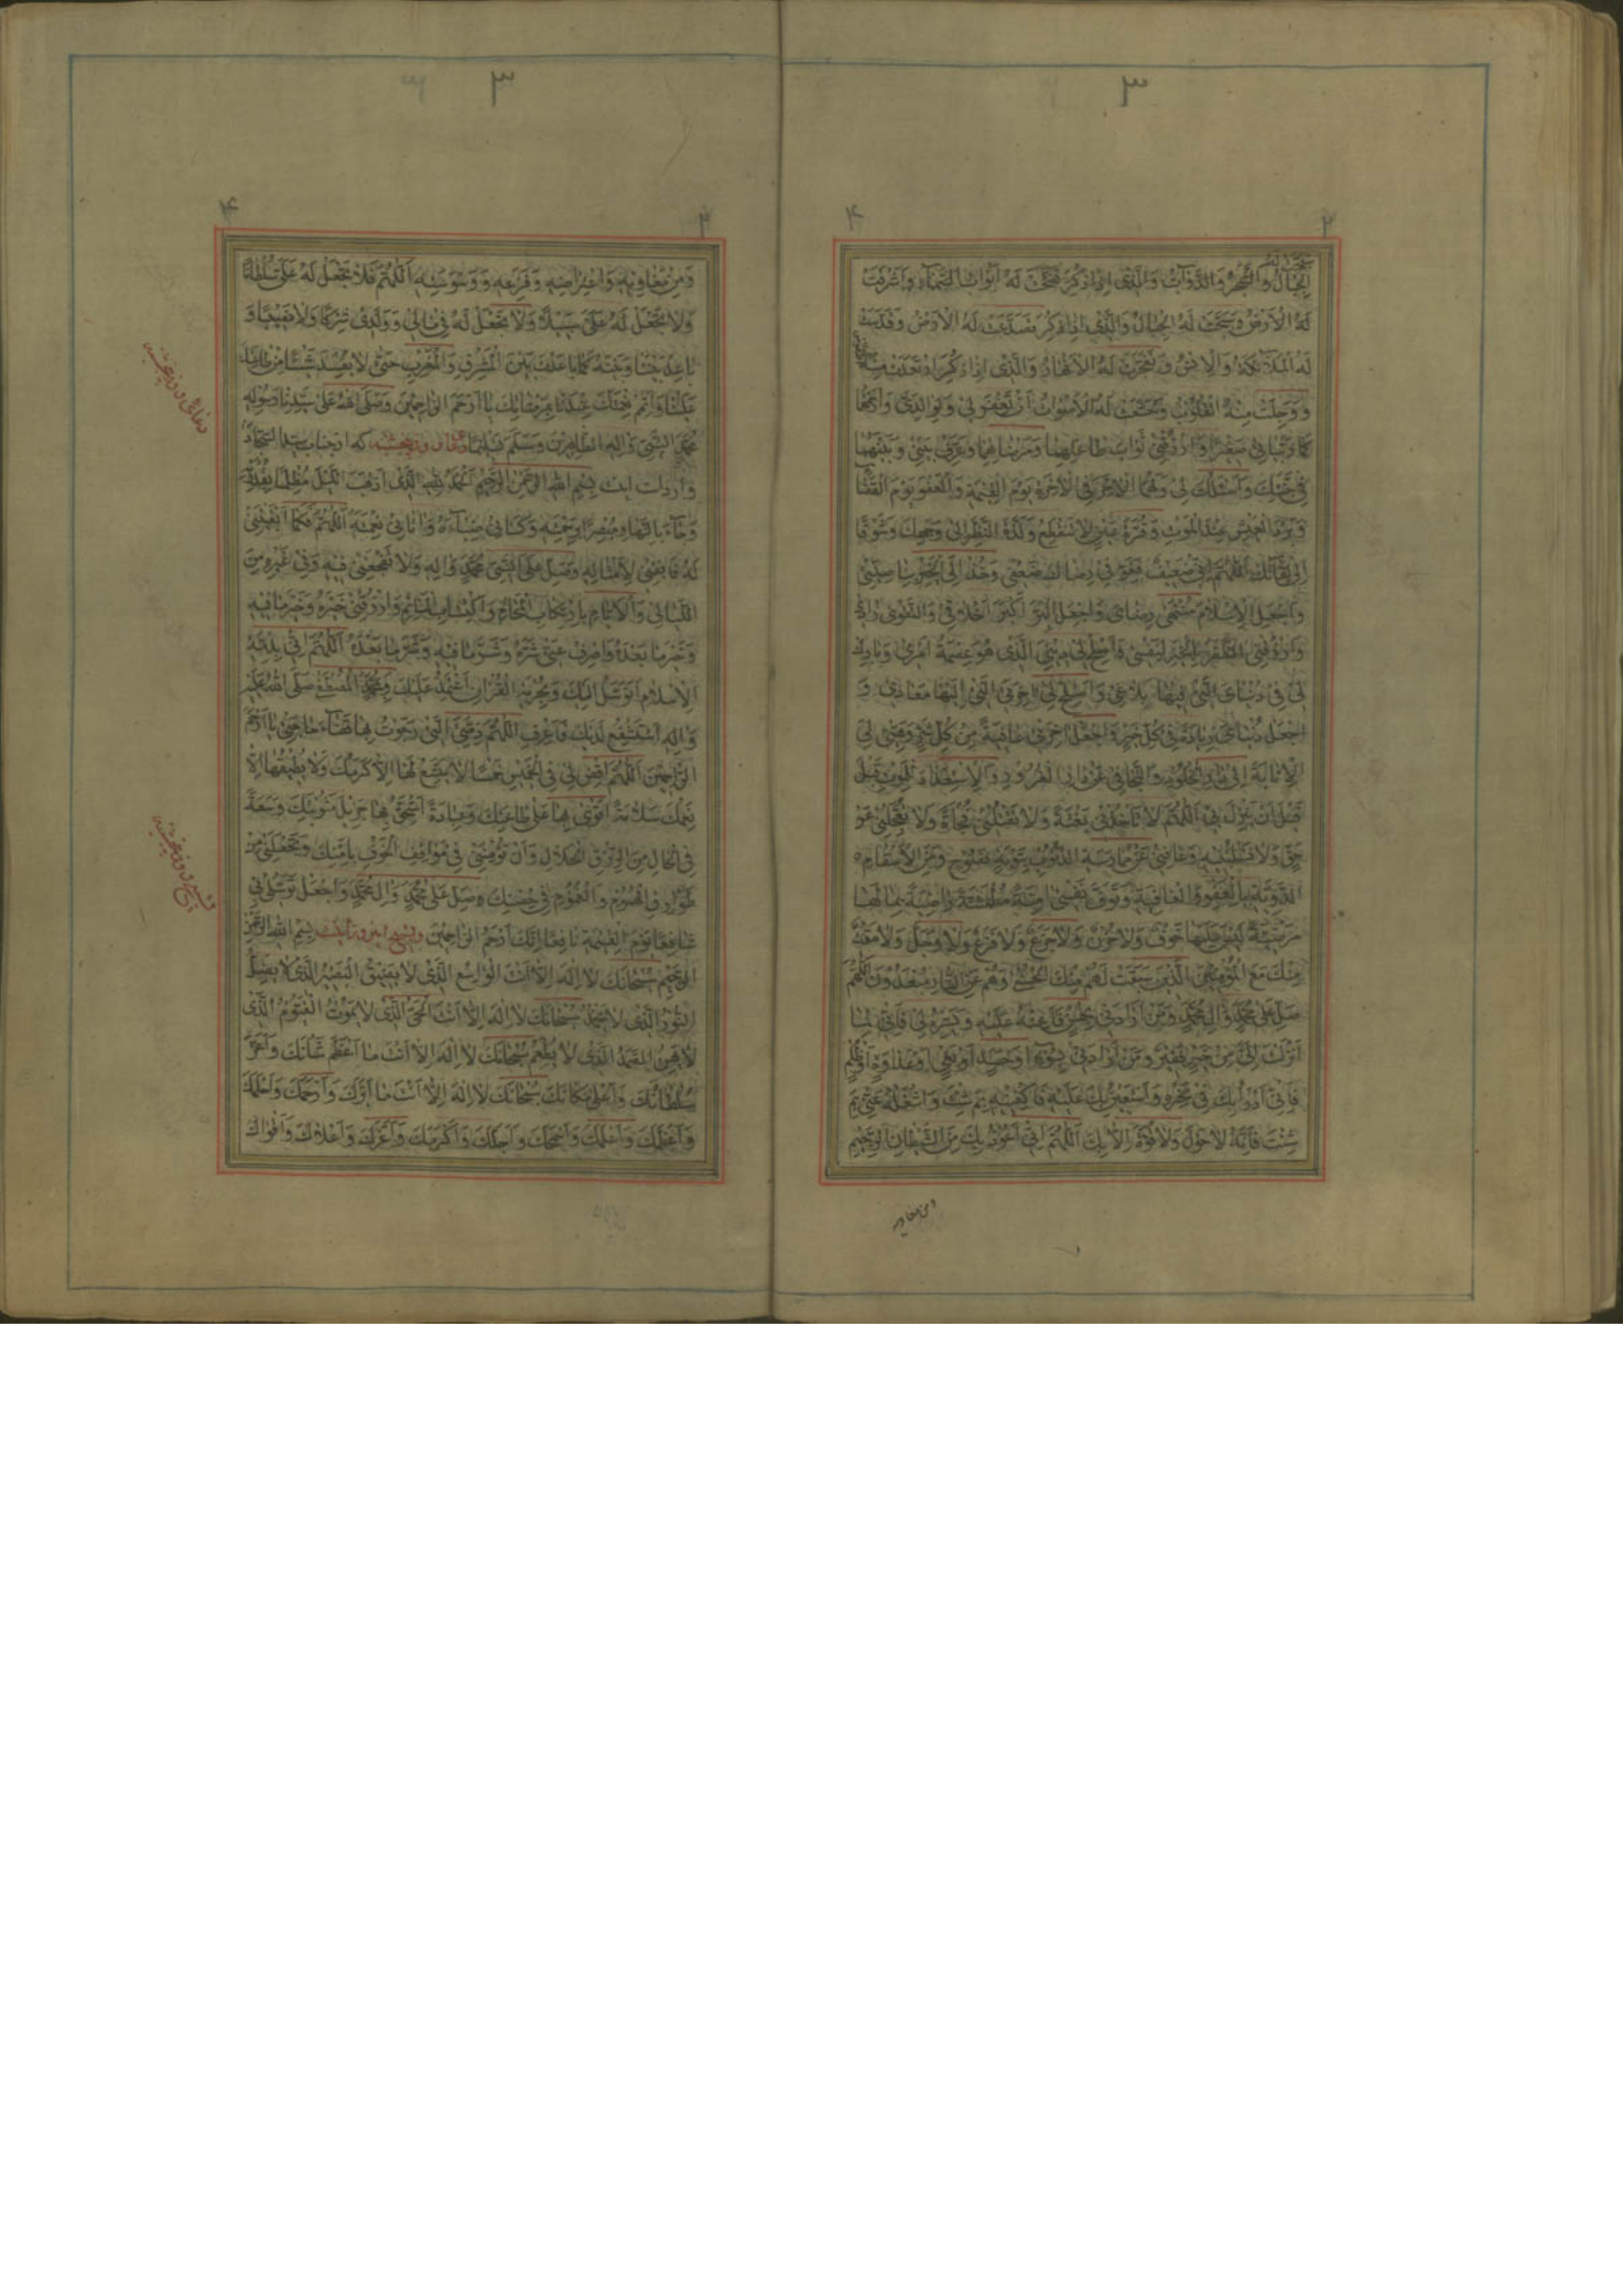 ۳
۲
۴
سبحت له
الجبال والشجر والدواب والذی اذا ذکر فتحت له ابواب السماء واشرقت
له الارض وسبحت له الجبال والذی اذا ذکر تصدعت له الارض وقدست
له الملائکة والانس وتفجرت له الانهار والذی اذا ذکر ارتعدت منه
ووجلت منه القلوب وخشعت له الاصوات ان تغفر لی ولوالدی وارحمهما
کما ربیانی صغیرا وارزقنی ثواب طاعتهما ومرضاتهما وعرف بینی وبینهما
فی جنتک واسئلک لی ولهما الاجر فی الآخرة یوم القیمة والعفو یوم القضاء
وبرد العیش عند الموت وقرة عین لا تنقطع ولذة النظر الی وجهک وشوقا
الی لقائک اللهم انی ضعیف فقو فی رضاک ضعفی وخذ الی الخیر بناصیتی
واجعل الاسلام منتهی رضای واجعل البر اکبر اخلاقی والتقوی زادی
وارزقنی الظفر بالخیر لنفسی واصلح لی دینی الذی هو عصمة امری وبارک
لی فی دنیای التی فیها بلاغی واصلح لی آخرتی التی الیها معادی و
اجعل دنیای زیادة فی کل خیر واجعل آخرتی عافیة من کل شر وهیئ لی
الانابة الی دار الخلود والتجافی عن دار الغرور والاستعداد للموت قبل
قبل ان ینزل بی اللهم لا تاخذنی بغتة ولا تقتلنی فجاة ولا تعجلنی عن
حق ولا تسلبنیه وعافنی عن ممارسة الذنوب بتوبة نصوح ومن الاسقام
الدویة بالعفو والعافیة وتوف نفسی آمنة مطمئنة راضیة بما لها
مرضیة لیس علیها خوف ولا حزن ولا جزع ولا فزع ولا وجل ولا مقت
منک مع المؤمنین الذین سبقت لهم منک الحسنی وهم عن النار مبعدون اللهم
صل علی محمد وآل محمد ومن ارادنی بخیر فاعنه علیه ویسره لی فانی لما
انزلت الی من خیر فقیر ومن ارادنی بسوء او حسد او بغی او عداوة او ظلم
فانی ادرا بک فی نحره واستعین بک علیه فاکفنیه بم شئت واشغله عنی بم
شئت فانه لا حول ولا قوة الا بک اللهم انی اعوذ بک من الشیطان الرجیم
ومن مغاویه
۳
۳
۴
ومن مغاویه واعتراضه وفزعه ووسوسته اللهم فلا تجعل له علی سلطانا
ولا تجعل له علی سبیلا ولا تجعل له فی مالی وولدی شرکا ولا نصیبا و
باعد بیننا وبینه کما باعدت بین المشرق والمغرب حتی لا یفسد شیئا من طاعتک
علینا واتم نعمتک عندنا بمرضاتک یا ارحم الراحمین وصلی الله علی سیدنا رسوله
محمد النبی وآله الطاهرین وسلم تسلیما دعای روز پنجشنبه که از جناب سید السجاد
وارد است اینست بسم الله الرحمن الرحیم الحمد لله الذی اذهب اللیل مظلما بقدرته
وجاء بالنهار مبصرا برحمته وکسانی ضیاءه وآتانی نعمته اللهم فکما ابقیتنی
له فابقنی لامثاله وصل علی النبی محمد وآله ولا تفجعنی فیه وفی غیره من
اللیالی والایام بارتکاب المحارم واکتساب المآثم وارزقنی خیره وخیر ما فیه
وخیر ما بعده واصرف عنی شره وشر ما فیه وشر ما بعده اللهم انی بذمة
الاسلام اتوسل الیک وبحرمة القرآن اعتمد علیک وبمحمد المصطفی صلی الله علیه
وآله استشفع لدیک فاعرف اللهم ذمتی التی رجوت بها قضاء حاجتی یا ارحم
الراحمین اللهم اقض لی فی الخمیس خمسا لا یتسع لها الا کرمک ولا یطیقها الا
نعمک سلامة اقوی بها علی طاعتک وعبادة استحق بها جزیل مثوبتک وسعة
فی الحال من الرزق الحلال وان تؤمننی فی مواقف الخوف بامنک وتجعلنی من
طوارق الهموم والغموم فی حصنک وصل علی محمد وآل محمد واجعل توسلی به
شافعا یوم القیمة نافعا انک ارحم الراحمین وتسبیح این روز اینست بسم الله الرحمن
الرحیم سبحانک لا اله الا انت الواسع الذی لا یضیق البصیر الذی لا یضل
النور الذی لا یخمد سبحانک لا اله الا انت الحی الذی لا یموت القیوم الذی
لا یهن الصمد الذی لا یطعم سبحانک لا اله الا انت ما اعظم شانک واعز
سلطانک واعلی مکانک سبحانک لا اله الا انت ما ابرک وارحمک واحلمک
واعظمک واعلمک واسمحک واجلک واکرمک واعزک واعلاک واقواک
دعای روز پنجشنبه
تسبیح روز پنجشنبه